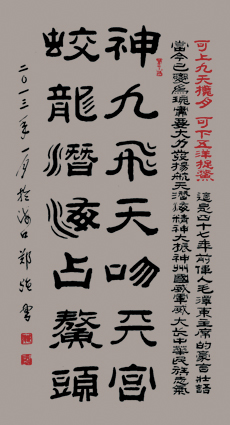 可上九天攬月 可下五洋捉鱉 這是四十七年前偉人毛澤東主席的豪言壯語
當今已變為現實要大力發揚航天潛海精神大振神州國威軍威大長中華民族志氣
神九飛天吻天宮
蛟龍潛海占鰲頭
二〇一三年一月於海口鄭